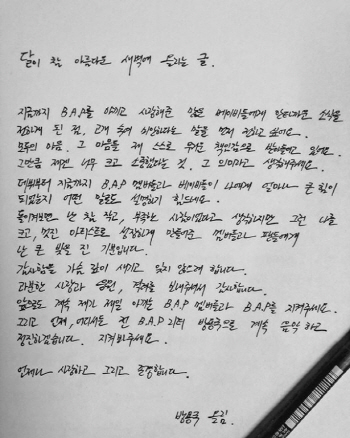 달이 참 아름다운 새벽에 올리는 글.
지금까지 B.A.P를 아끼고 사랑해준 많은 베이비들에게 안타까운 소식을
전하게 된 점. 고개 숙여 미안하다는 말을 먼저 전하고 싶어요.
모두의 아픔. 그 마음을 제 스스로 무거운 책임감으로 받아들이고 있어요.
그만큼 제겐 너무 크고 소중했다는 것. 그 의미라고 생각해주세요.
데뷔부터 지금까지 B.A.P 멤버들과 베이비들이 나에게 얼마나 큰 힘이
되었는지 어떤 말로도 설명하기 힘드네요.
돌이켜보면 난 참 작고, 부족한 사람이었다고 생각하지만 그런 나를
크고, 멋진 아티스트로 성장하게 만들어준 멤버들과 팬들에게
난 큰 빚을 진 기분입니다.
감사함을 가슴 깊이 새기고 잊지 않으려 합니다.
과분한 사랑과 응원, 격려를 보내주셔서 감사합니다.
앞으로도 계속 제가 제일 아끼는 B.A.P 멤버들과 B.A.P를 지켜주세요.
그리고 언제, 어디서든 전 B.A.P 리더 방용국으로 계속 음악 하고
정진하겠습니다. 지켜봐주세요.
언제나 사랑하고 그리고 존경합니다.
방용국 올림.